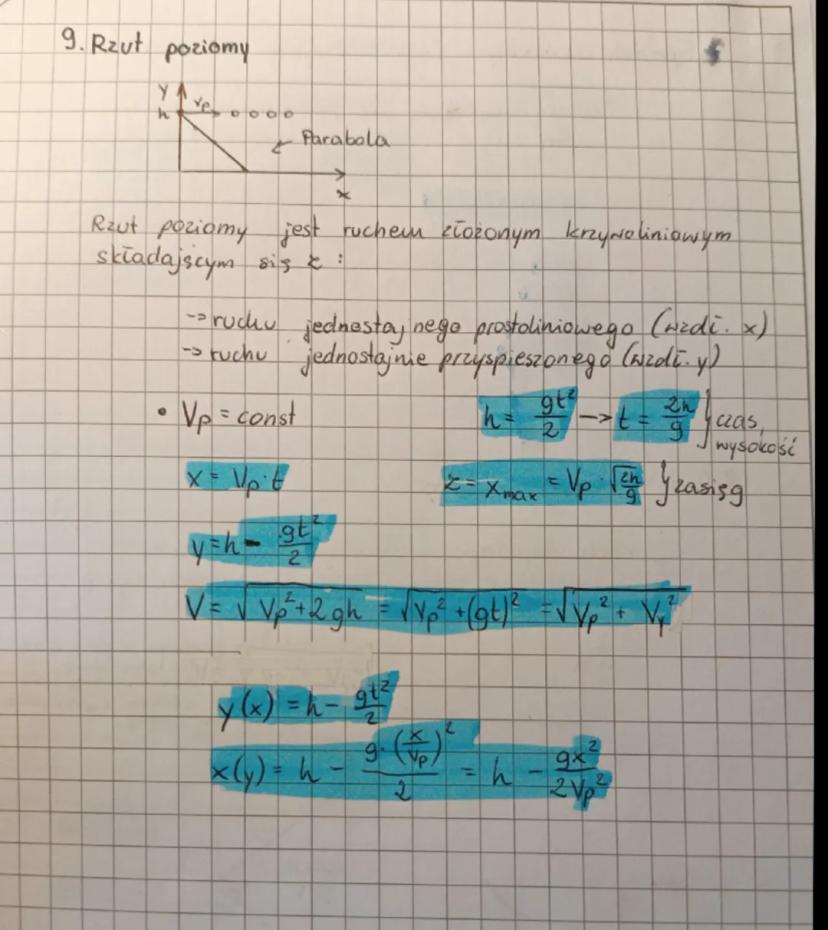 9. Rzut poziomy
y
h
Vp
Parabola
x
Rzut poziomy jest ruchem złożonym krzywoliniowym
składającym się z :
-> ruchu jednostajnego prostoliniowego (wzdł. x)
-> ruchu jednostajnie przyspieszonego (wzdł. y)
• Vp = const
h = gt²/2 -> t = 2h/g } czas, wysokość
x = Vp · t
z = xmax = Vp · √(2h/g) } zasięg
y = h - gt²/2
V = √(Vp² + 2gh) = √(Vp² + (gt)²) = √(Vp² + Vy²)
y(x) = h - gt²/2
x(y) = h - g · (x/Vp)²/2 = h - gx²/2Vp²